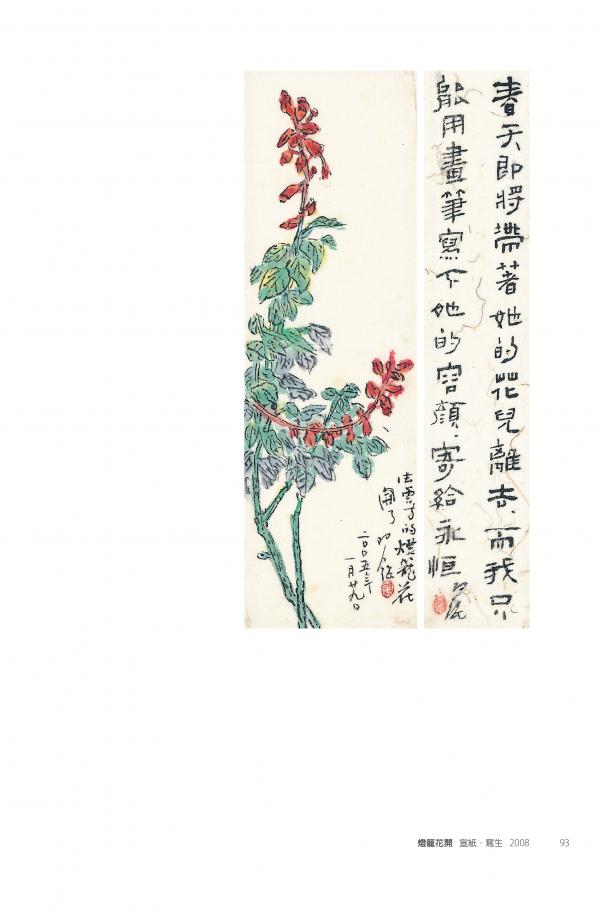 春天即將帶著她的花兒離去、而我只
能用畫筆寫下她的容顏、寄給永恒
法雲寺的燈籠花
開了
二〇〇五年
一月廿九日
燈籠花開 宣紙·寫生 2008 93